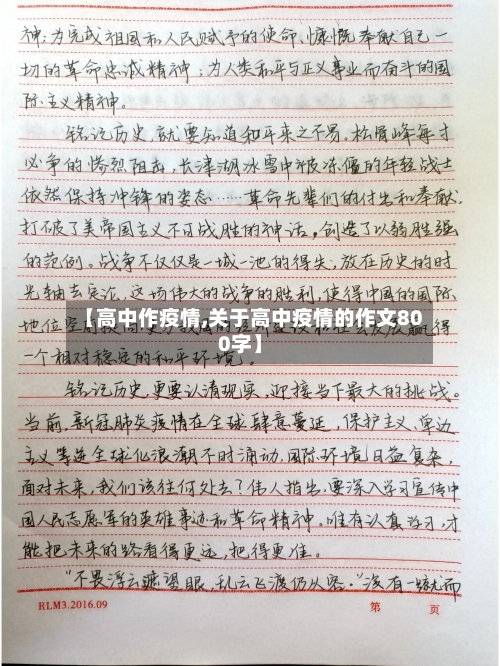 神；为完成祖国和人民赋予的使命、慷慨奉献自己一
切的革命忠诚精神；为人类和平与正义事业而奋斗的国
际主义精神。
铭记历史，就要知道和平来之不易。松骨峰每寸
必争的惨烈阻击，长津湖冰雪中被冻僵的年轻战士
依然保持冲锋的姿态……革命先辈们的付出和奉献，
打破了美帝国主义不可战胜的神话，创造了以弱胜强
的范例。战争不仅仅是一城一池的得失，放在历史的时
光轴去定论，这场伟大的战争的胜利，使得中国的国际
地位空
【高中作疫情,关于高中疫情的作文80
0字】
赢得
一个相对稳定的和平环境。
铭记历史，更要认清现实，迎接当下最大的挑战。
当前，新冠肺炎疫情在全球肆意蔓延，保护主义、单边
主义等逆全球化浪潮不时涌动，国际环境日益复杂，
面对未来，我们该往何处去？伟人指出，要深入学习宣传中
国人民志愿军的英雄事迹和革命精神。唯有认真学习，才
能把未来的路看得更远，把得更准。
“不畏浮云遮望眼，乱云飞渡仍从容。”没有一
RLM3.2016.09 第 页